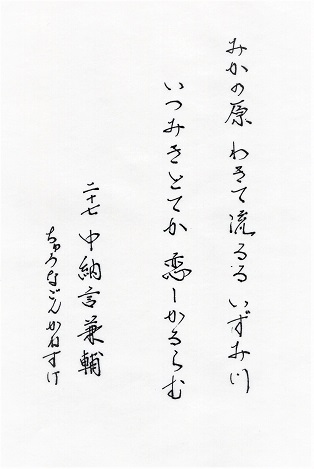 みかの原 わきて流るる いずみ川
いつみきとてか 恋しかるらむ
二十七 中納言兼輔
ちゅうなごんかねすけ